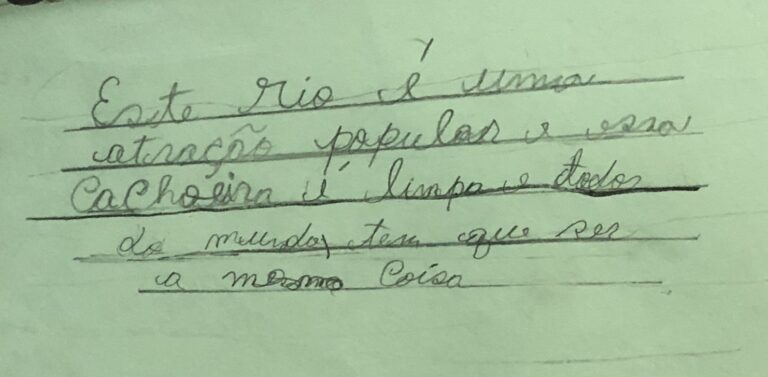 Este rio é uma
atração popular e essa
cachoeira é limpa e todos
do mundo, tem que ser
a mesmo coisa